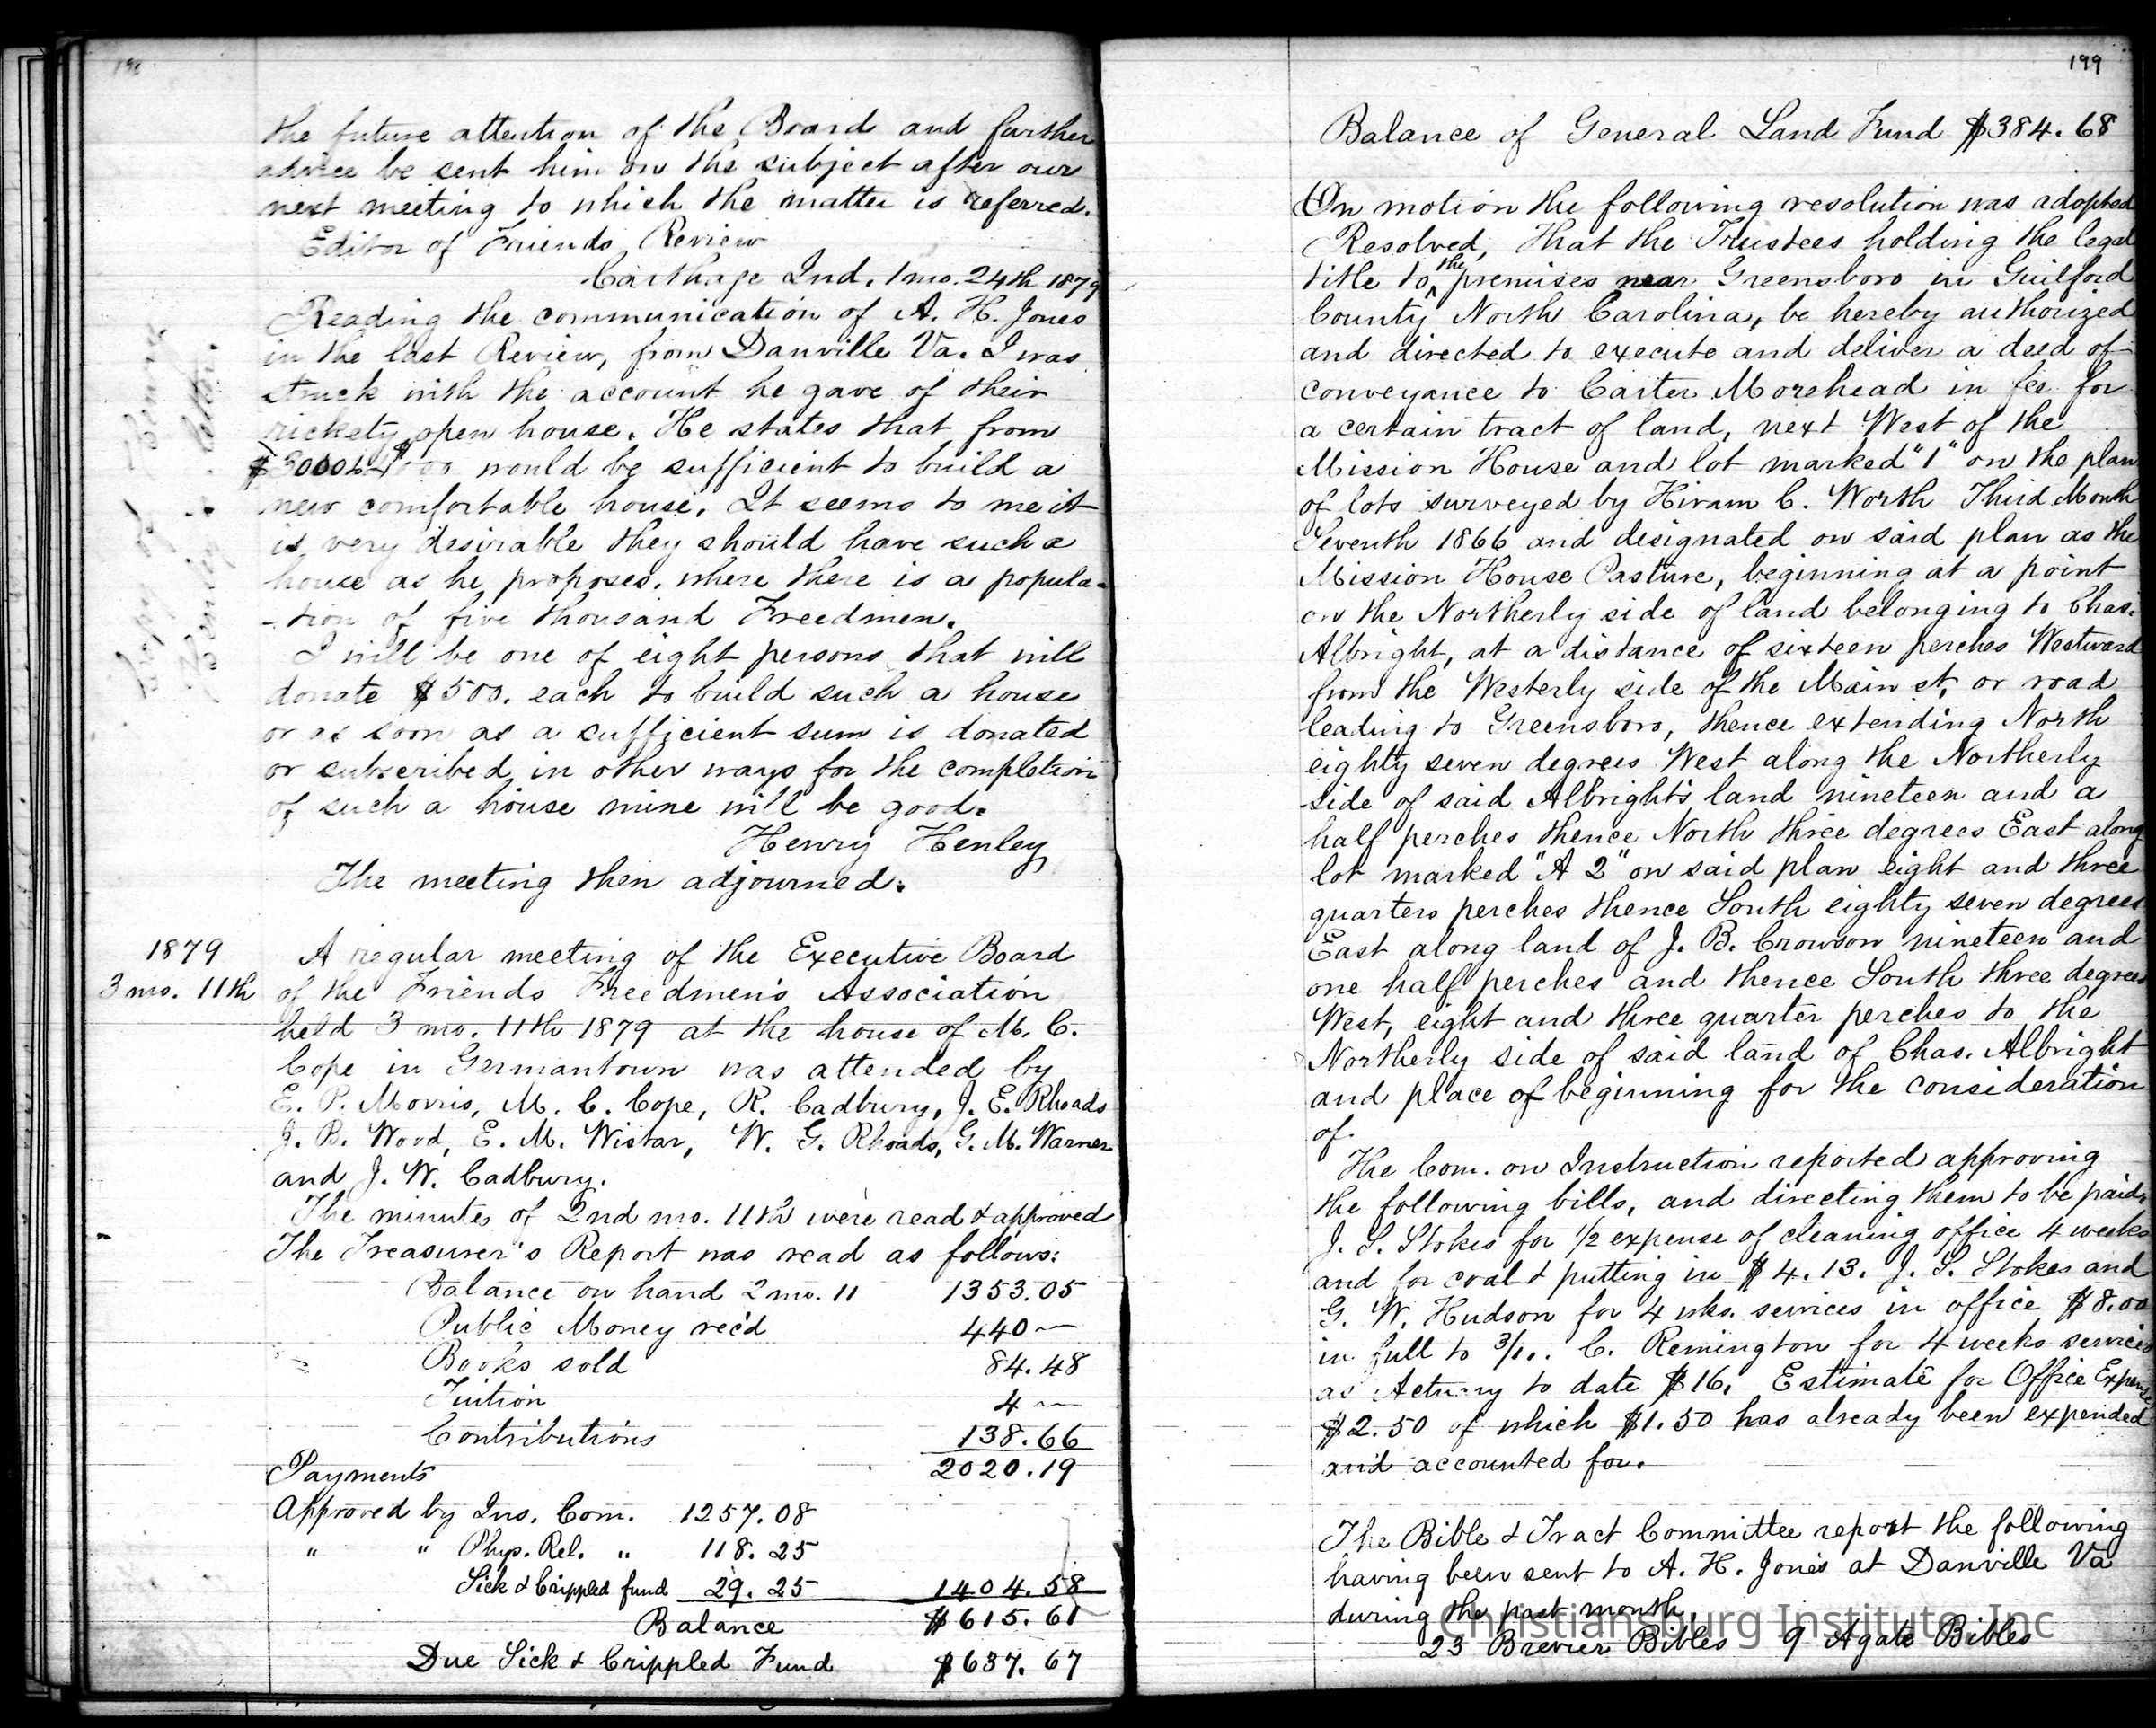 198
the future attention of the Board and further
advice be sent him on the subject after our
next meeting to which the matter is referred.
Editor of Friends Review
Carthage Ind. 1 mo. 24th 1879
Reading the communication of A. H. Jones
in the last Review, from Danville Va. I was
struck with the account he gave of their
rickety open house. He states that from
would be sufficient to build a
new comfortable house. It seems to me it
is very desirable they should have such a
house as he proposes, where there is a popula-
-tion of five thousand Freedmen.
I will be one of eight persons that will
donate $500. each to build such a house
or as soon as a sufficient sum is donated
or subscribed in other ways for the completion
of such a house mine will be good.
Henry Henley
Copy of Henry
Henley's letter.
The meeting then adjourned.
1879
3 mo. 11th
A regular meeting of the Executive Board
of the Friends Freedmen's Association
held 3 mo. 11th 1879 at the house of M. C.
Cope in Germantown was attended by
E. P. Morris, M. C. Cope, R. Cadbury, J. E. Rhoads
J. B. Wood, E. M. Wistar, W. G. Rhoads, G. M. Warner
and J. W. Cadbury.
The minutes of 2nd mo. 11th were read & approved
The Treasurer's Report was read as follows:
Balance on hand 2 mo. 11 1353.05
Public Money rec'd 440 —
Books sold 84.48
Tuition 4 —
Contributions 138.66
Payments 2020.19
Approved by Ins. Com. 1257.08
" " Phys. Rel. " 118.25
Sick & Crippled fund 29.25 1404.58
Balance $615.61
Due Sick & Crippled Fund $637.67
199
Balance of General Land Fund $384.68
On motion the following resolution was adopted
Resolved, That the Trustees holding the legal
title to the premises near Greensboro in Guilford
County North Carolina, be hereby authorized
and directed to execute and deliver a deed of
conveyance to Carter Morehead in fee for
a certain tract of land, next West of the
Mission House and lot marked "1" on the plan
of lots surveyed by Hiram C. Worth Third Month
Seventh 1866 and designated on said plan as the
Mission House Pasture, beginning at a point
on the Northerly side of land belonging to Chas.
Albright, at a distance of sixteen perches Westward
from the Westerly side of the Main st, or road
leading to Greensboro, thence extending North
eighty seven degrees West along the Northerly
side of said Albright's land nineteen and a
half perches thence North three degrees East along
lot marked "A 2" on said plan eight and three
quarters perches thence South eighty seven degrees
East along land of J. B. Crowson nineteen and
one half perches and thence South three degrees
West, eight and three quarter perches to the
Northerly side of said land of Chas. Albright
and place of beginning for the consideration
of.
The Com. on Instruction reported approving
the following bills, and directing them to be paid,
J. S. Stokes for 1/2 expense of cleaning office 4 weeks
and for coal & putting in $4.13. J. S. Stokes and
G. W. Hudson for 4 wks. services in office $8.00
in full to 3/1.. C. Remington for 4 weeks services
as Actuary to date $16. Estimate for Office Expense
$2.50 of which $1.50 has already been expended
and accounted for.
The Bible & Tract Committee report the following
having been sent to A. H. Jones at Danville Va
during the past month,
23 Brevier Bibles 9 Agate Bibles
Christiansburg Institute, Inc